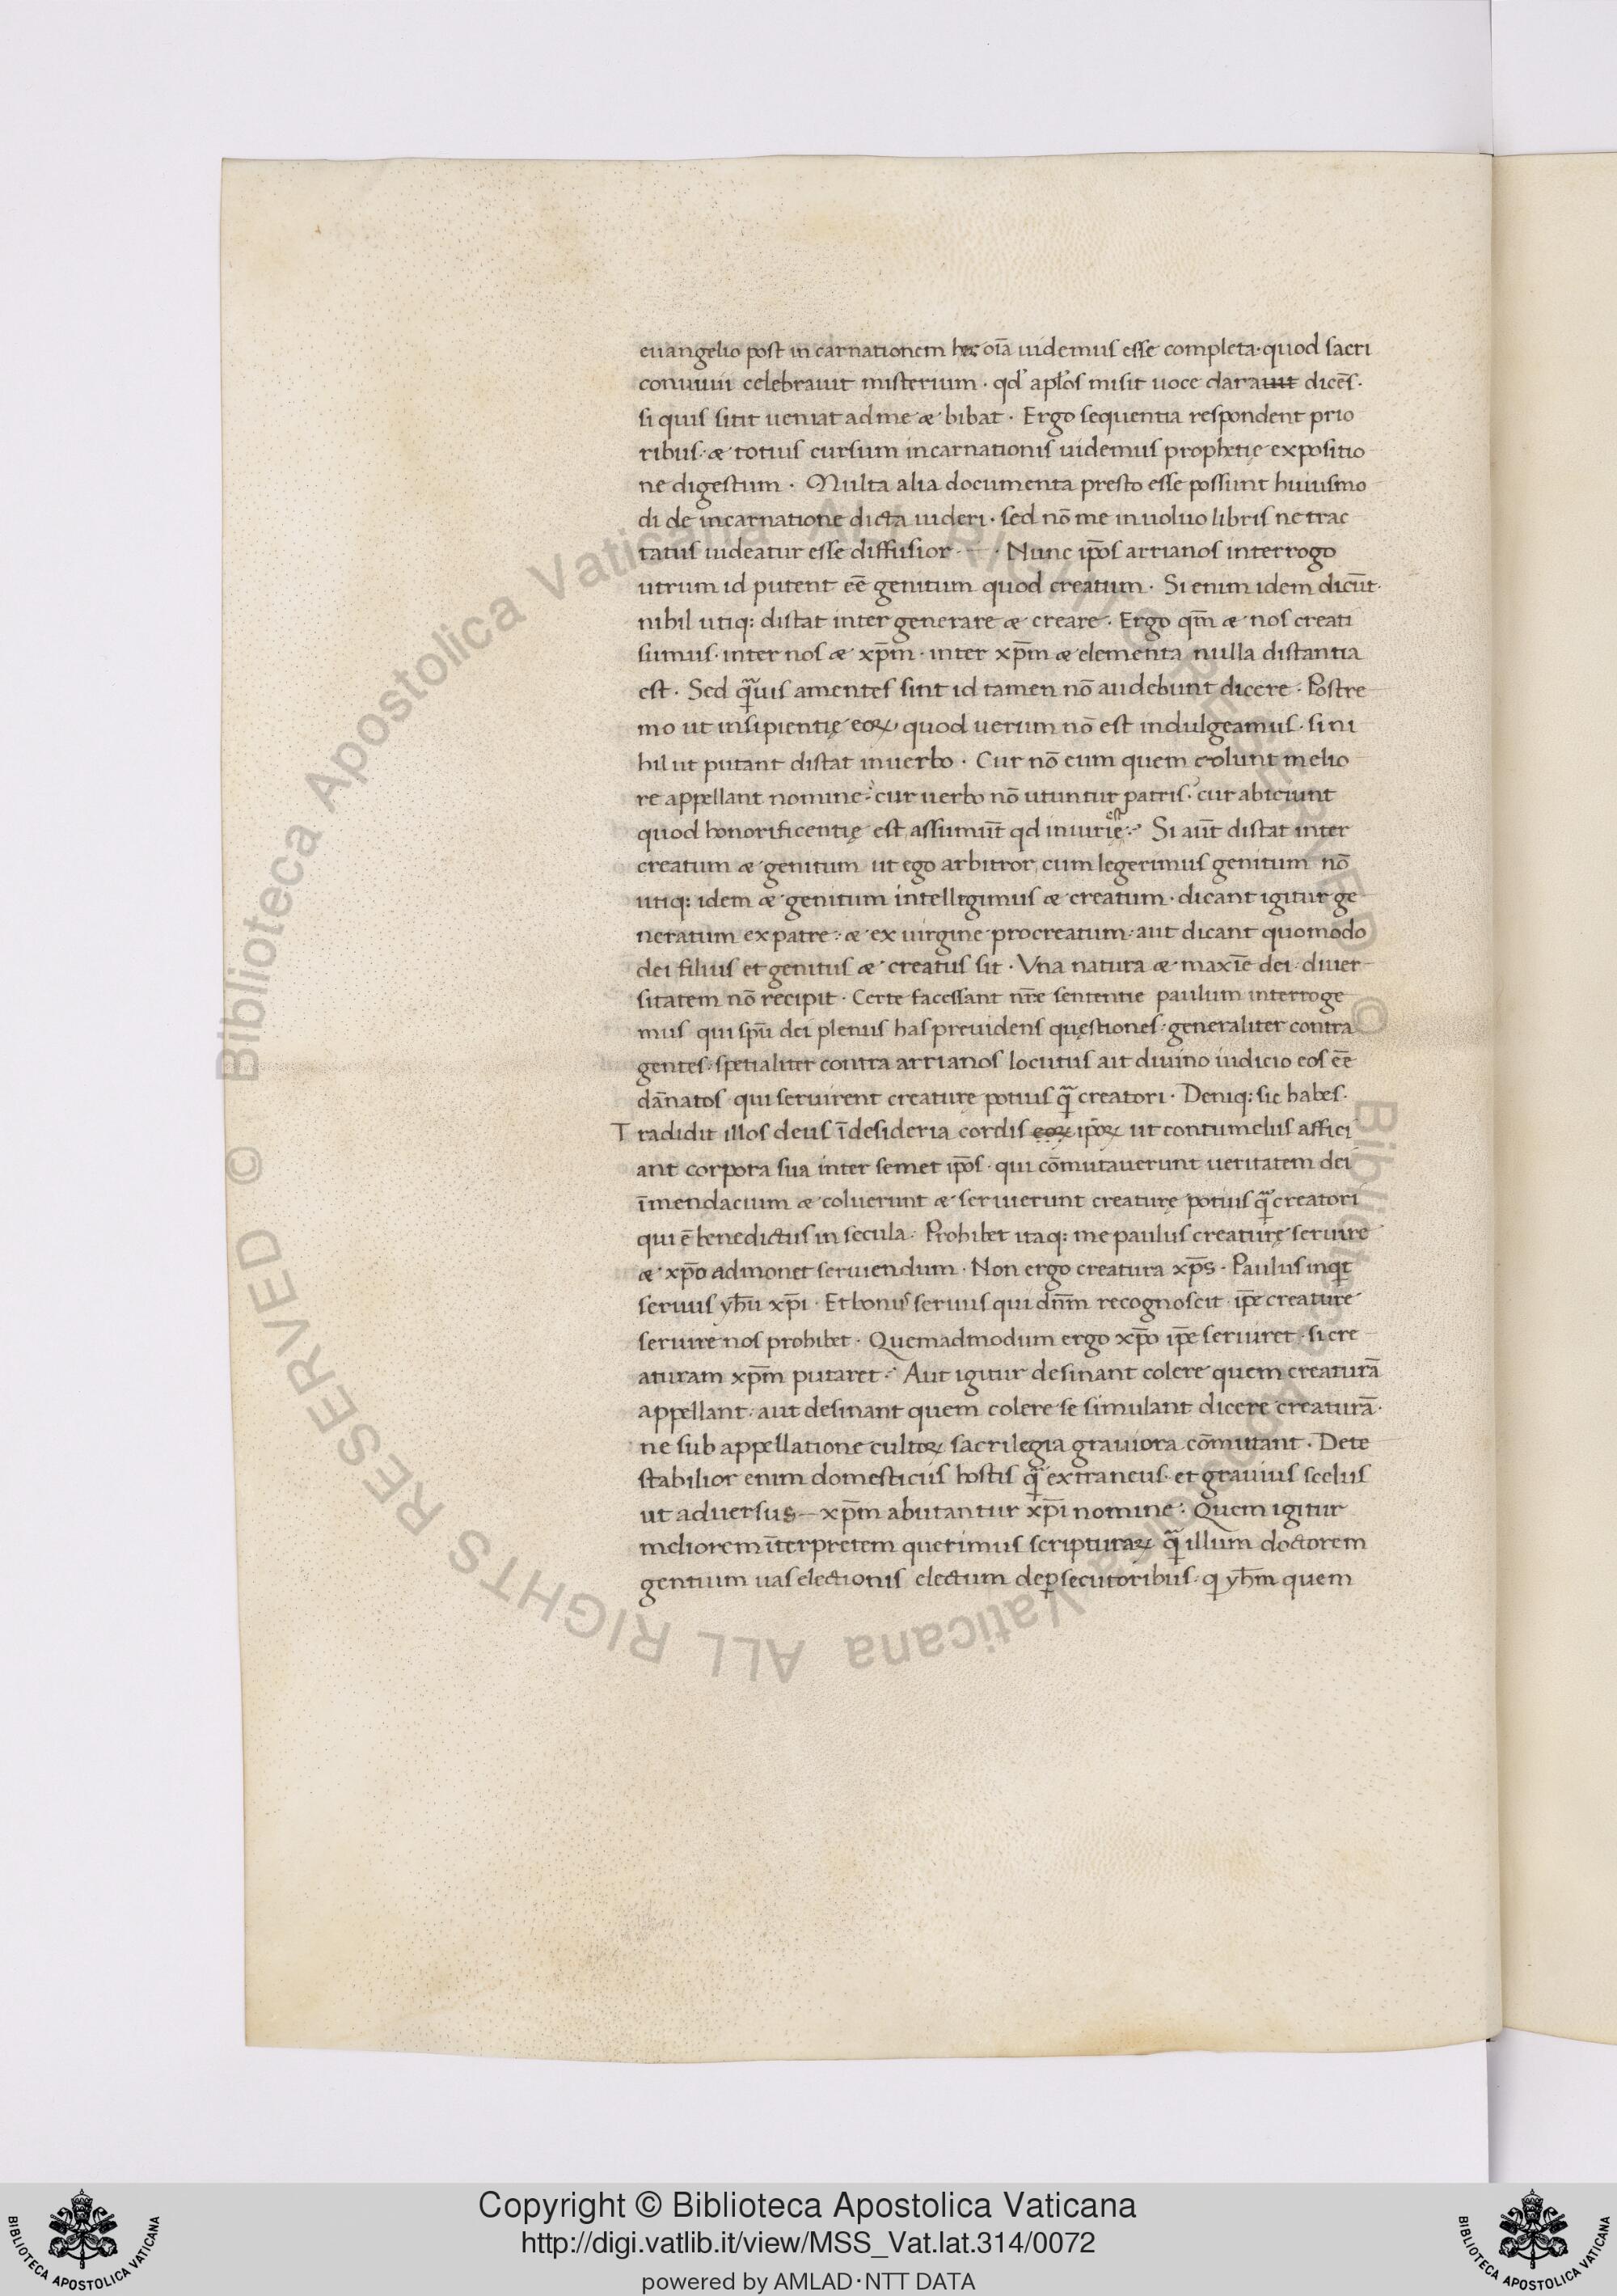 euangelio post in carnationem hec oīa uidemus esse completa· quod sacri
conuiuii celebrauit misterium · qd' apl'os misit uoce clarauit dicēs·
si quis sitit ueniat ad me & bibat · Ergo sequentia respondent prio
ribus· & totius cursum incarnationis uidemus prophetię expositio
ne digestum · Multa alia documenta presto esse possunt huiusmo
di de incarnatione dicta uideri · sed nō me inuoluo libris ne trac
tatus uideatur esse diffusior — · Nunc ip̄os arrianos interrogo
utrum id putent eē genitum quod creatum · Si enim idem dicūt·
nihil utiq: distat inter generare & creare · Ergo qm̄ & nos creati
sumus· inter nos & xp̄m · inter xp̄m & elementa nulla distantia
est · Sed quāuis amentes sint id tamen nō audebunt dicere · Postre
mo ut insipientię eoꝝ quod uerum nō est indulgeamus · si ni
hil ut putant distat in uerbo · Cur nō eum quem colunt melio
re appellant nomine? cur uerbo nō utuntur patris? cur abiciunt
quod honorificentię est assumūt qd iniurię est? Si aūt distat inter
creatum & genitum ut ego arbitror, cum legerimus genitum nō
utiq: idem & genitum intelligimus & creatum · dicant igitur ge
neratum ex patre· & ex uirgine procreatum· aut dicant quomodo
dei filius et genitus & creatus sit · Vna natura & maxīe dei · diuer
sitatem nō recipit · Certe facessant nr̄e sententie paulum interroge
mus qui sp̄u dei plenus has preuidens quęstiones· generaliter contra
gentes· spetialiter contra arrianos locutus ait diuino iudicio eos eē
dānatos qui seruirent creaturę potius quā creatori · Deniq: sic habes·
Tradidit illos deus ī desideria cordis eoꝝ ip̄oꝝ ut contumeliis affici
ant corpora sua inter semet ip̄os · qui cōmutauerunt ueritatem dei
ī mendacium & coluerunt & seruierunt creaturę potius quā creatori
qui ē benedictus in secula · Prohibet itaq: me paulus creaturę seruire
& xp̄o admonet seruiendum · Non ergo creatura xp̄s · Paulus inqt
seruus yh̄u xp̄i · Et bonus seruus qui dn̄m recognoscit · ip̄e creature
seruire nos prohibet · Quemadmodum ergo xp̄o ip̄e seruiret · si cre
aturam xp̄m putaret? Aut igitur desinant colere quem creaturā
appellant· aut desinant quem colere se simulant dicere creaturā·
ne sub appellatione cultoꝝ sacrilegia grauiora cōmittant · Dete
stabilior enim domesticus hostis quā extraneus· et grauius scelus
ut aduersus — xp̄m abutantur xp̄i nomine · Quem igitur
meliorem īterpretem querimus scripturaꝝ quā illum doctorem
gentium uas electionis electum de ꝑsecutoribus · q yh̄m quem
Copyright © Biblioteca Apostolica Vaticana
http://digi.vatlib.it/view/MSS_Vat.lat.314/0072
powered by AMLAD·NTT DATA
BIBLIOTECA APOSTOLICA VATICANA
BIBLIOTECA APOSTOLICA VATICANA
© Biblioteca Apostolica Vaticana ALL RIGHTS RESERVED © Biblioteca Apostolica Vaticana ALL RIGHTS RESERVED